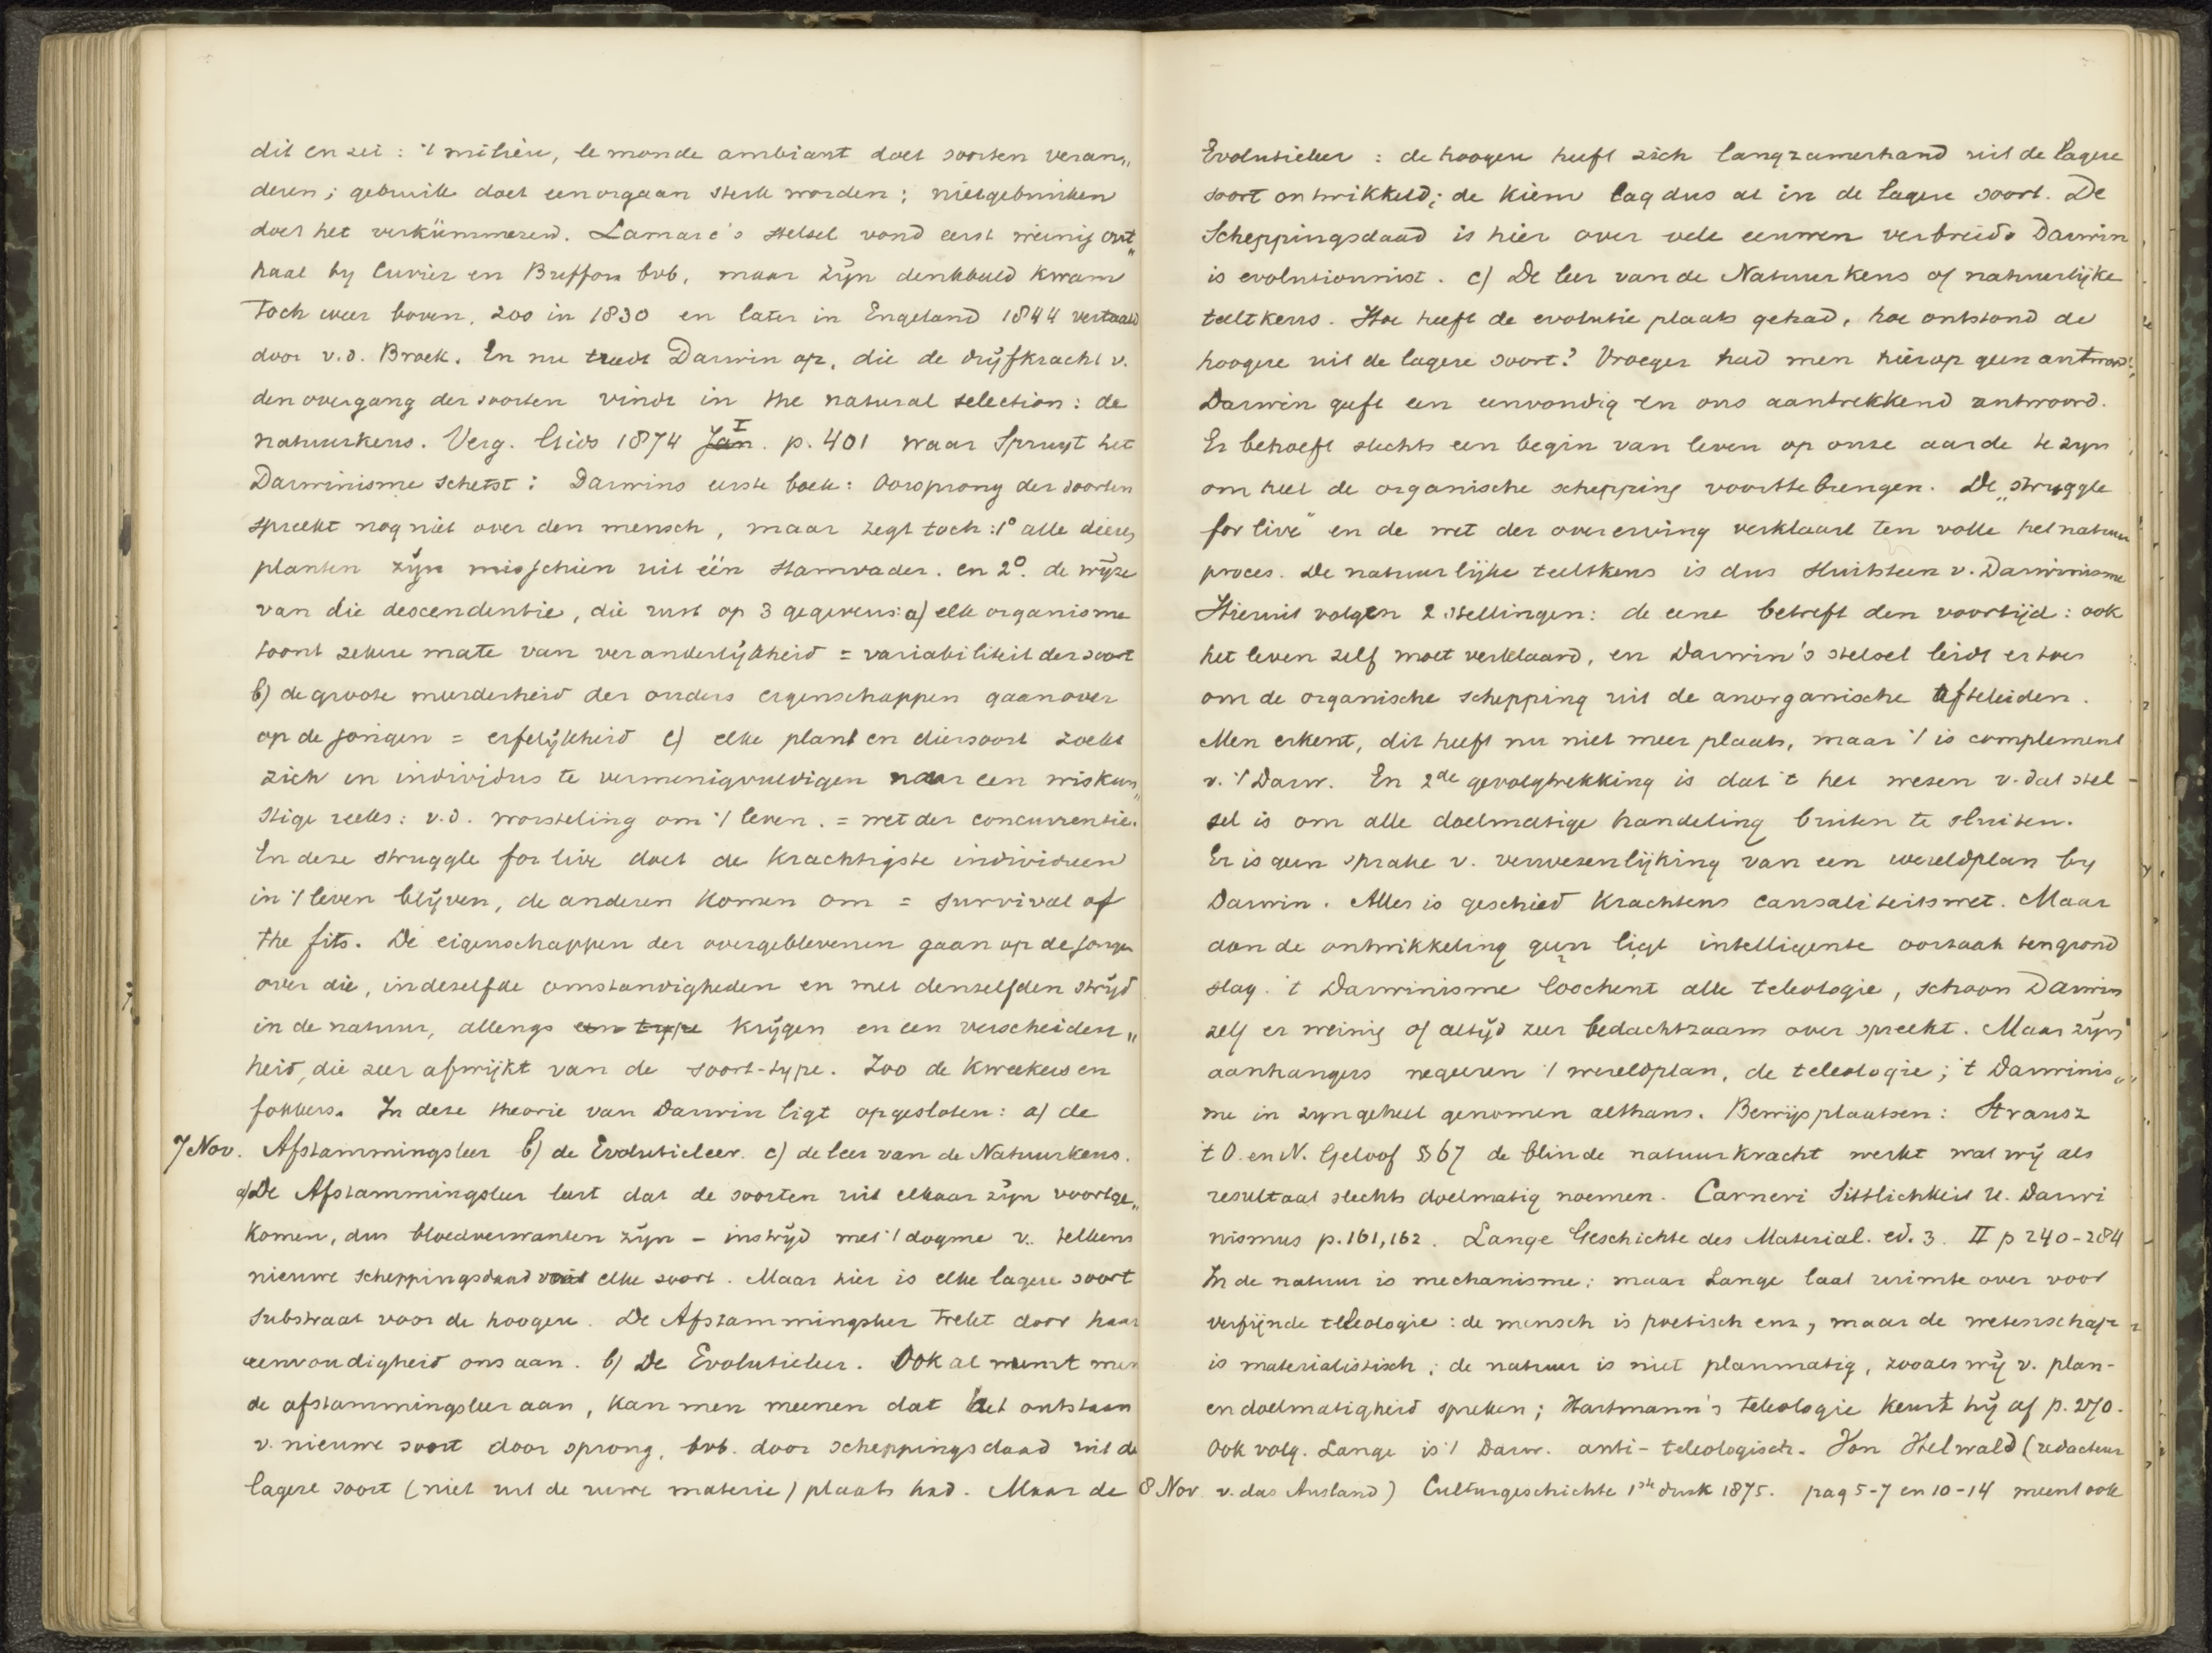 dit en zei: 't milieu, le monde ambiant doet soorten veran„
deren; gebruik doet een orgaan sterk worden; nietgebruiken
doet het verkümmeren. Lamarc's stelsel vond eerst weinig ont„
haal by Cuvier en Buffon bvb, maar zijn denkbeeld kwam
toch weer boven, zoo in 1830 en later in Engeland 1844 vertaald
door v.d. Broek. En nu treedt Darwin op, die de drijfkracht v.
den overgang der soorten vindt in the natural selection: de
natuurkeus. Verg. Gids 1874 Jan. I p. 401 waar Spruyt het
Darwinisme schetst: Darwins eerste boek: Oorsprong der soorten
spreekt nog niet over den mensch, maar zegt toch: 1° alle dieren
planten zijn misschien uit één stamvader. en 2°. de wijze
van die descendentie, die rust op 3 gegevens: a) elk organisme
toont zekere mate van veranderlijkheid = variabiliteit der soort
b) de groote meerderheid der ouders eigenschappen gaan over
op de jongen = erfelijkheid c) elke plant en diersoort zoekt
zich en individus te vermenigvuldigen naar een wiskun„
stige reeks: v.d. worsteling om 't leven. = wet der concurrentie.
In deze struggle for live doet de krachtigste individuen
in 't leven blijven, de anderen komen om = survival of
the fits. De eigenschappen der overgeblevenen gaan op de jongen
over die, in dezelfde omstandigheden en met denzelfden strijd
in de natuur, allengs een type krijgen en een verscheiden„
heid, die zeer afwijkt van de soort-type. Zoo de kweekers en
fokkers. In deze theorie van Darwin ligt opgesloten: a) de
7 Nov. Afstammingsleer b) de Evolutieleer. c) de leer van de Natuurkeus.
a) De Afstammingsleer leert dat de soorten uit elkaar zijn voortge„
komen, dus bloedverwanten zijn – in strijd met 't dogme v. telkens
nieuwe scheppingsdaad voor elke soort. Maar hier is elke lagere soort
substraat voor de hoogere. De Afstammingsleer trekt door haar
eenvoudigheid ons aan. b) De Evolutieleer. Ook al neemt men
de afstammingsleer aan, kan men meenen dat het ontstaan
v. nieuwe soort door sprong, bvb. door scheppingsdaad uit de
lagere soort (niet uit de ruwe materie) plaats had. Maar de
Evolutieleer: de hoogere heeft zich langzamerhand uit de lagere
soort ontwikkeld; de kiem lag dus al in de lagere soort. De
Scheppingsdaad is hier over vele eeuwen verbreid. Darwin
is evolutionnist. c) De leer van de Natuurkeus of natuurlijke
teeltkeus. Hoe heeft de evolutie plaats gehad, hoe ontstond de
hoogere uit de lagere soort? Vroeger had men hierop geen antwoord;
Darwin geeft een eenvoudig en ons aantrekkend antwoord.
Er behoeft slechts een begin van leven op onze aarde te zijn
om heel de organische schepping voorttebrengen. De „struggle
for live" en de wet der overerving verklaart ten volle het natuur
proces. De natuurlijke teeltkeus is dus sluitsteen v. Darwinisme
Hieruit volgen 2 stellingen: de eene betreft den voortijd: ook
het leven zelf moet verklaard, en Darwin's stelsel leidt er toe
om de organische schepping uit de anorganische afteleiden.
Men erkent, dit heeft nu niet meer plaats, maar 't is complement
v. 't Darw. En 2de gevolgtrekking is dat 't het wezen v. dat stel-
sel is om alle doelmatige handeling buiten te sluiten.
Er is geen sprake v. verwezenlijking van een wereldplan by
Darwin. Alles is geschied krachtens causaliteitswet. Maar
aan de ontwikkeling geen ligt intelligente oorzaak ten grond
slag. 't Darwinisme loochent alle teleologie, schoon Darwin
zelf er weinig of altijd zeer bedachtzaam over spreekt. Maar zijn
aanhangers negeeren 't wereldplan, de teleologie; 't Darwinis„
me in zyn geheel genomen althans. Bewijsplaatsen: Strausz
't O. en N. Geloof § 67 de blinde natuurkracht werkt wat wij als
resultaat slechts doelmatig noemen. Carneri Sittlichkeit u. Darwi
nismus p. 161, 162. Lange Geschichte des Material. ed. 3. II p 240-284
In de natuur is mechanisme; maar Lange laat ruimte over voor
verfijnde teleologie: de mensch is poetisch enz, maar de wetenschap
is materialistisch; de natuur is niet planmatig, zooals wij v. plan-
en doelmatigheid spreken; Hartmann's teleologie keurt hij af p. 270.
Ook volg. Lange is 't Darw. anti-teleologisch. Von Helwald (redacteur
8 Nov v. das Ausland) Culturgeschichte 1ste druk 1875. pag 5-7 en 10-14 meent ook